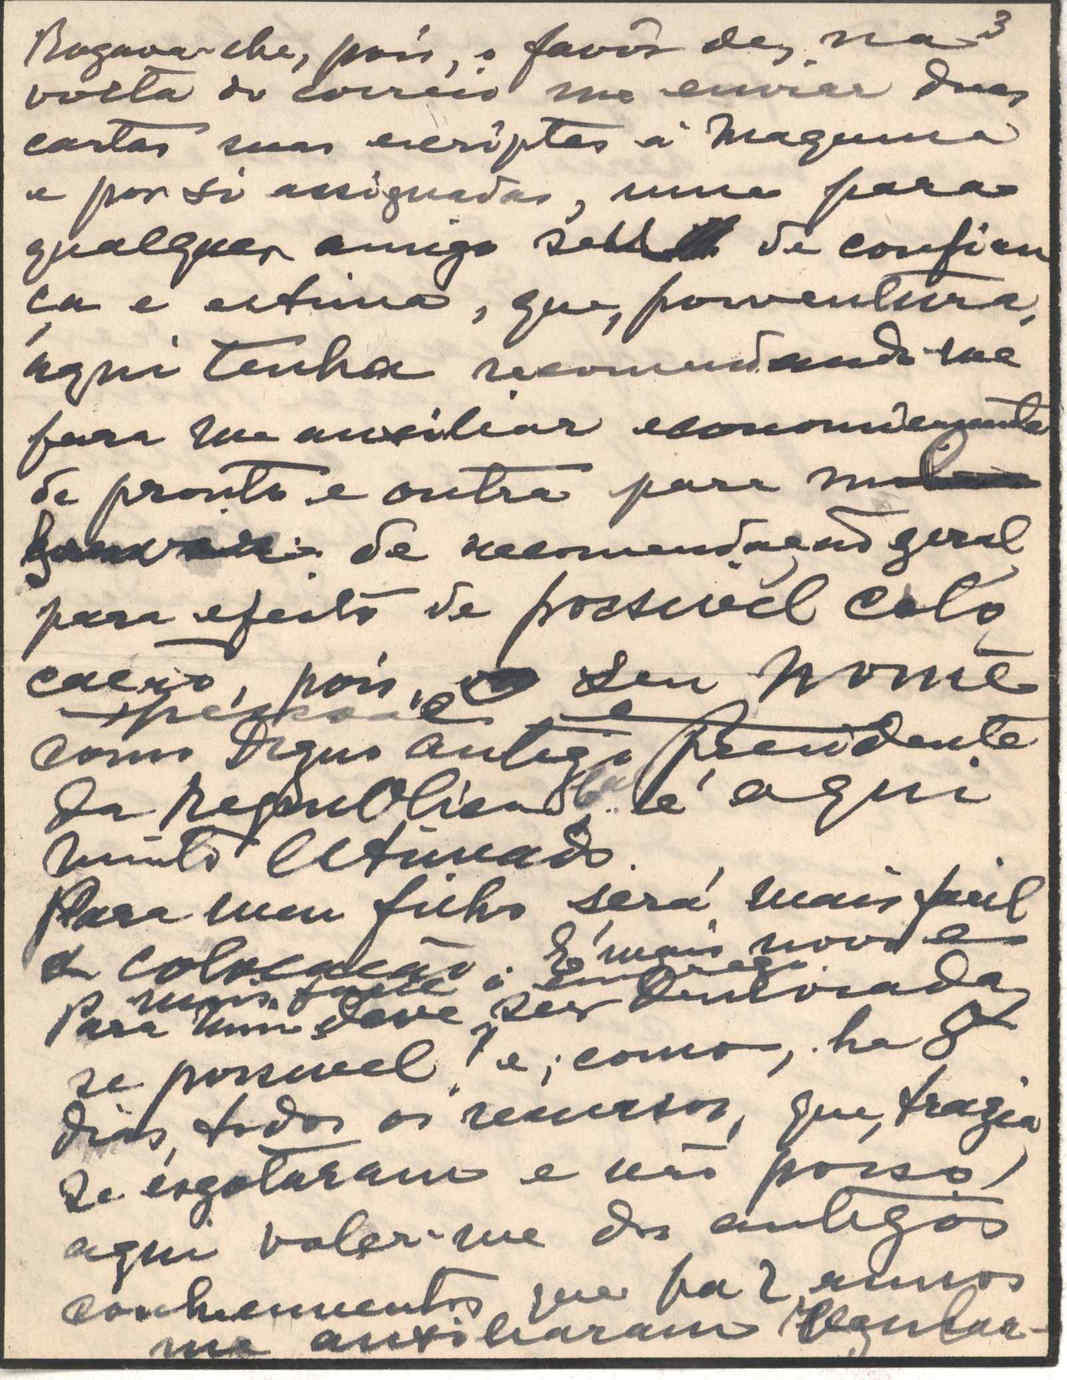 3
Rogava-lhe, pois, o favôr de, na
volta do correio me enviar duas
cartas suas escriptas á maquina
e por si assignadas, uma para
qualquer amigo seu de confian
ça e estima, que, porventura,
aqui tenha recomendando-me
para me auxiliar economicamente
de pronto e outra para
de recomendação geral
para efeito de possivel colo
cação, pois, seu nome
como digno antigo Presidente
da Republica é aqui
muito estimado.
Para meu filho será mais facil
a colocação. É mais novo e
mais forte o emprego
Para mim deve ser demorada,
se possivel! e, como, ha 8
dias, todos os recursos, que, trazia
se esgotaram e não posso,
aqui valer-me dos antigos
conhecimentos que fa 2 annos
me auxiliaram regular-